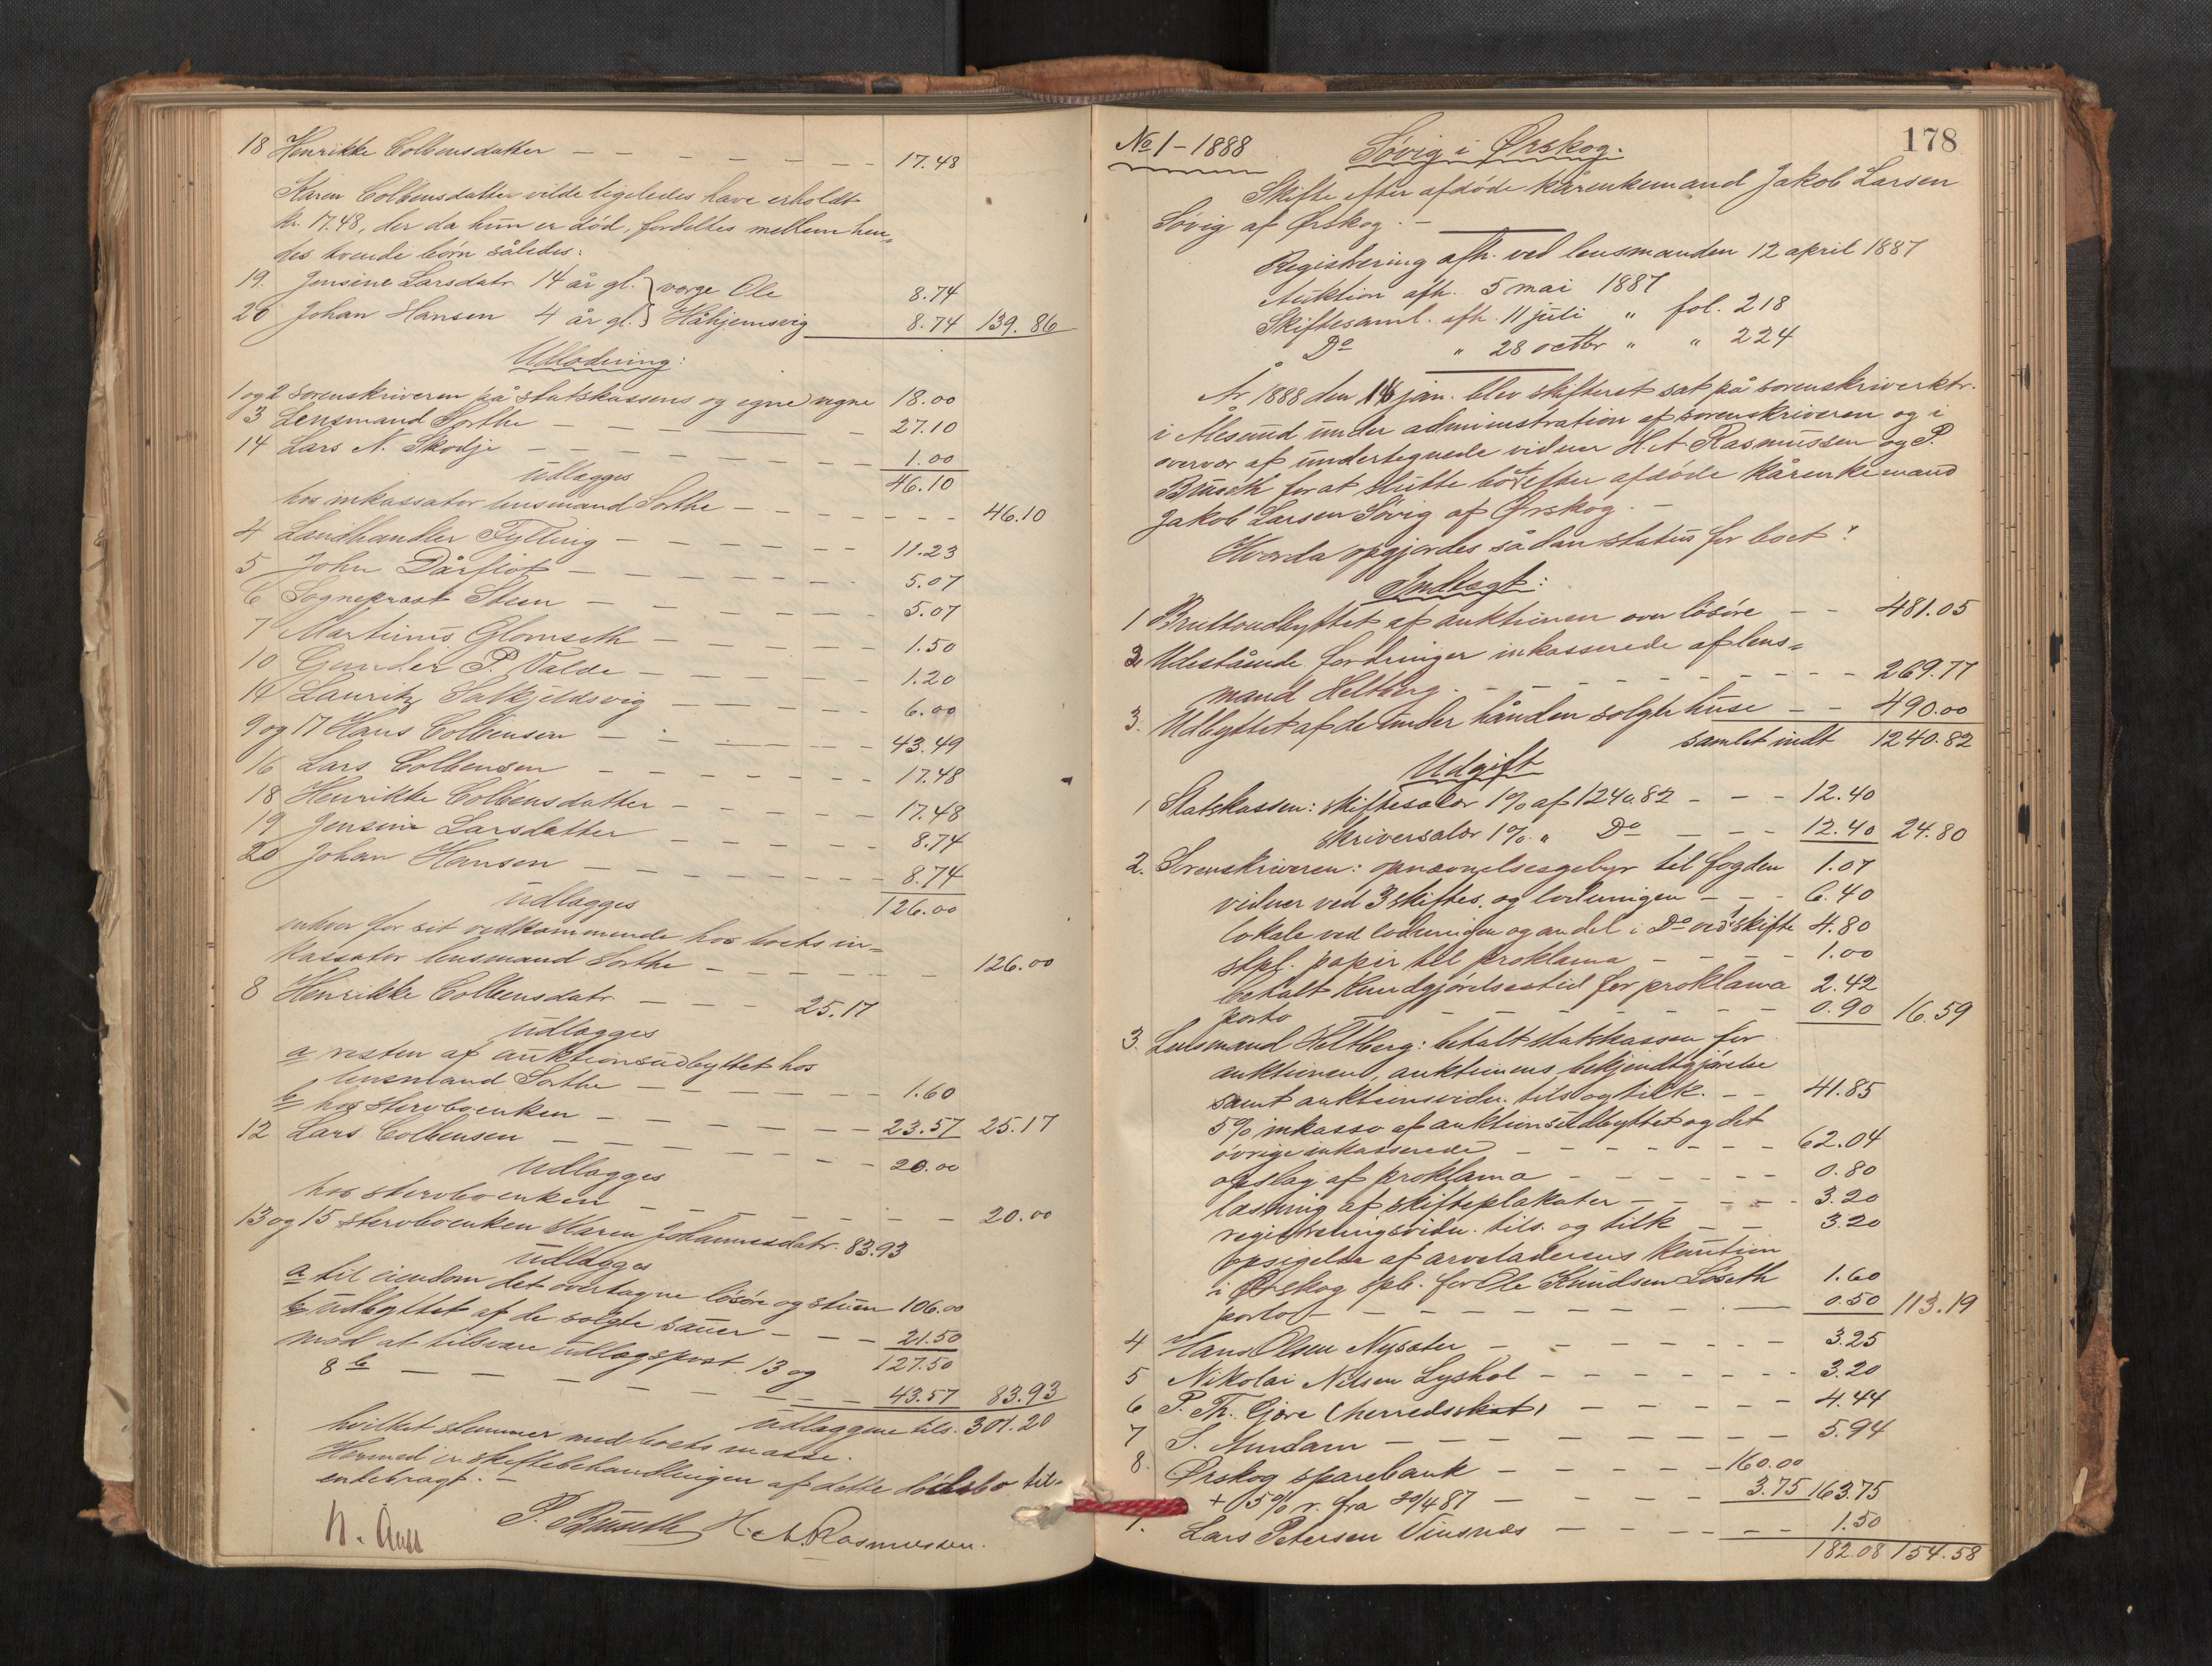 18 Henrikke Colbensdatter — — — — — — — 17.48
Karen Colbensdatter vilde ligeledes have erholdt
kr. 17.48, der da hun er död, fordeltes mellem hen-
des tvende börn således:
19. Jensine Larsdatr. 14 år gl. } værge Ole 8.74
20 Johan Hansen 4 år gl. } Håhjemsvig 8.74 139.86
Udlodning:
1 og 2 sorenskriveren på statskassens og egne vegne 18.00
3 Lensmand Sorthe — — — — — 27.10
14 Lars N. Skodje — — — — — — — 1.00
udlægges 46.10
hos inkassator lensmand Sorthe — — — — — — — 46.10
4 Landhandler Fylling — — — — — — 11.23
5 John Dårflot — — — — — — — 5.07
6 Sogneprest Steen — — — — — — 5.07
7 Martinus Glomseth — — — — — — 1.50
10 Gunder P. Valde — — — — — — 1.20
14 Lauritz Satkjeldsvig — — — — — 6.00
9 og 17 Hans Colbensen — — — — — — 43.49
16 Lars Colbensen — — — — — — — 17.48
18 Henrikke Colbensdatter — — — — — 17.48
19 Jensine Larsdatter — — — — — 8.74
20 Johan Hansen — — — — — — — 8.74
udlægges 126.00
enhver for sit vedkommende hos boets in-
kassator lensmand Sorthe — — — — — — 126.00
8 Henrikke Colbensdatr. — — — 25.17
udlægges
a resten af auktionsudbyttet hos
lensmand Sorthe — — — — — — 1.60
b hos sterboenken — — — — — — 23.57 25.17
12 Lars Colbensen — — — — — — 20.00
udlægges
hos sterboenken — — — — — — — 20.00
13 og 15 sterboenken Karen Johannesdatr. 83.93
udlægges
a til eiendom det overtagne lösöre og stuen 106.00
b udbyttet af de solgte sauer — — — 21.50
mod at tilsvare udlægspost. 13 og 127.50
8 b — — — — — — — 43.57 83.93
udlæggene tils. 301.20
hvilket stemmer med boets masse.
Hermed er skiftebehandlingen af dette dödsbo til-
endebragt. —
P. Buseth H. A. Rasmussen.

No 1 – 1888 Søvig i Ørskog. 178
Skifte efter afdöde kårenkemand Jakob Larsen
Søvig af Ørskog. —
Registrering afh. ved lensmanden 12 april 1887
Auktion afh. 5 mai 1887
Skiftesaml. afh. 11 juli " fol. 218
Do " 28 octbr " " 224
År 1888 den 14 jan. blev skifteret sat på sorenskriverktr.
i Ålesund under administration af sorenskriveren og i
overvær af undertegnede vidner H. A. Rasmussen og P.
Buseth for at slutte boet efter afdöde kårenkemand
Jakob Larsen Søvig af Ørskog. —
Hvorda opgjordes sådan status for boet:
Indtægt:
1 Bruttoudbyttet af auktionen over lösöre — — 481.05
2 Udestående fordringer inkasserede af lens-
mand Heltberg — — — — — — — 269.77
3. Udbyttet af de under hånden solgte huse — — 490.00
samlet indt 1240.82
Udgift
1 Statskassen: skiftesalær 1% af 1240.82 — — — 12.40
skriversalær 1% " Do — — — 12.40 24.80
2. Sorenskriveren: opnævnelsesgebyr til fogden 1.07
vidner ved 3 skiftes. og lodningen — — — 6.40
lokale ved lodningen og andel i Do ved 1 skifte 4.80
stpl. papir til proklama — — — — 1.00
betalt Kundgjörelsestid for proklama 2.42
porto — — — — — — — 0.90 16.59
3. Lensmand Heltberg: betalt statskassen for
auktionen, auktionens bekjendtgjörelse
samt auktionsvidn. tils. og tilk. — — 41.85
5% inkasso af auktionsudbyttet og det
övrige inkasserede — — — — — — 62.04
opslag af proklama — — — — — 0.80
læsning af skifteplakater — — — — 3.20
registreringsvidn. tils. og tilk — — 3.20
opsigelse af arveladerens kaution
i Ørskog spb. for Ole Knudsen Löseth 1.60
porto — — — — — — — 0.50 113.19
4 Hans Olsen Nysæter — — — — — — 3.25
5 Nikolai Nilsen Lyshol — — — — — — 3.20
6 P. Th. Gjære (herredsskat) — — — — — 4.44
7 S. Amdam — — — — — — — — 5.94
8. Ørskog sparebank — — — — — 160.00
+ 5% r. fra 30/4 87 — — — — 3.75 163.75
9. Lars Petersen Vinsnæs — — — — — 1.50
182.08 154.58